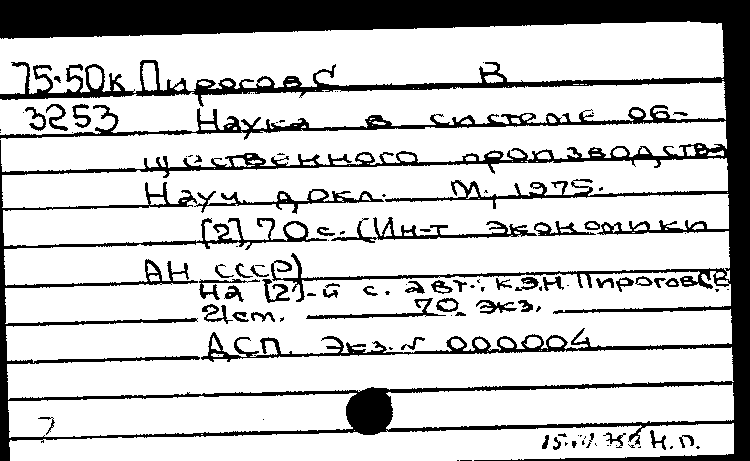 75-50к Пирогов, С В
3253 Наука в системе об-
щественного производства
Науч. докл. М., 1975.
[2], 70 с. (Ин-т экономики
АН СССР)
На [2]-й с. авт.: к.э.н. Пирогов С В
21 cm. 70 экз.
ДСП. Экз. № 000004
н.п.